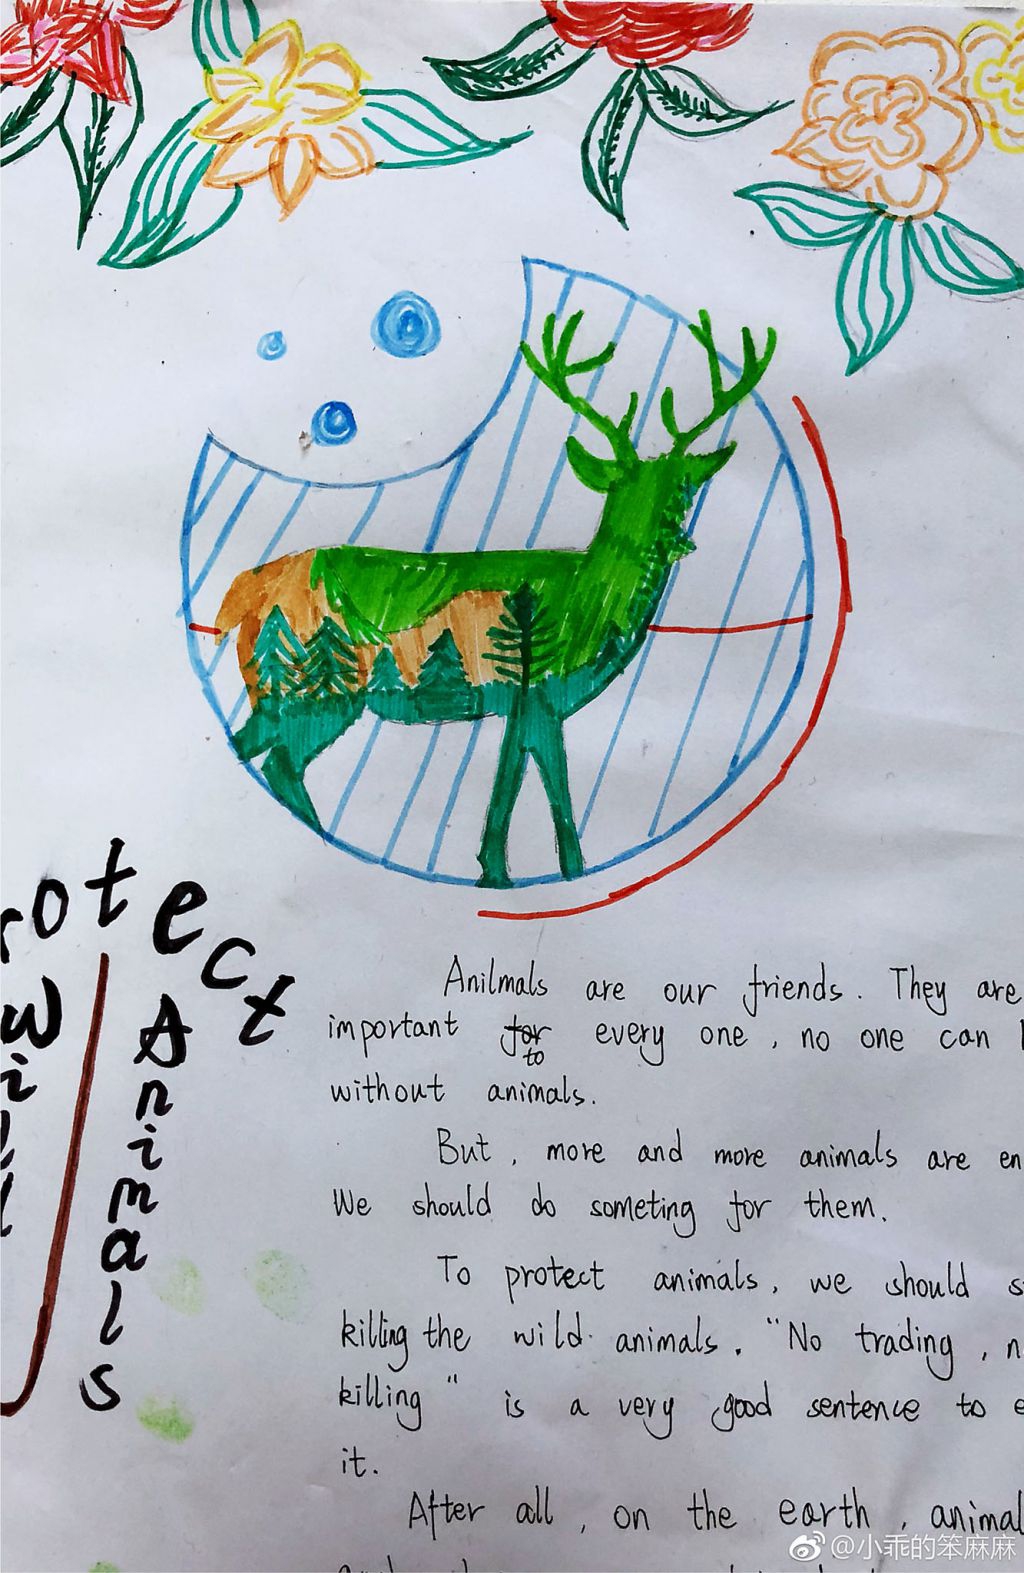 otect
Wild
Animals
Anilmals are our friends. They are
important for every one, no one can
to
without animals.
But, more and more animals are en
We should do someting for them.
To protect animals, we should s
killing the wild animals. "No trading, n
killing" is a very good sentence to e
it.
After all, on the earth, animal
@小乖的笨麻麻